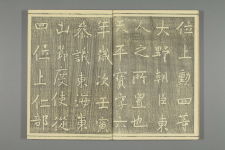 位上勲四等
大野朝臣東
人之所置也
天平寶字六
年歳次壬寅
參議東海東
山節度使從
四位上仁部